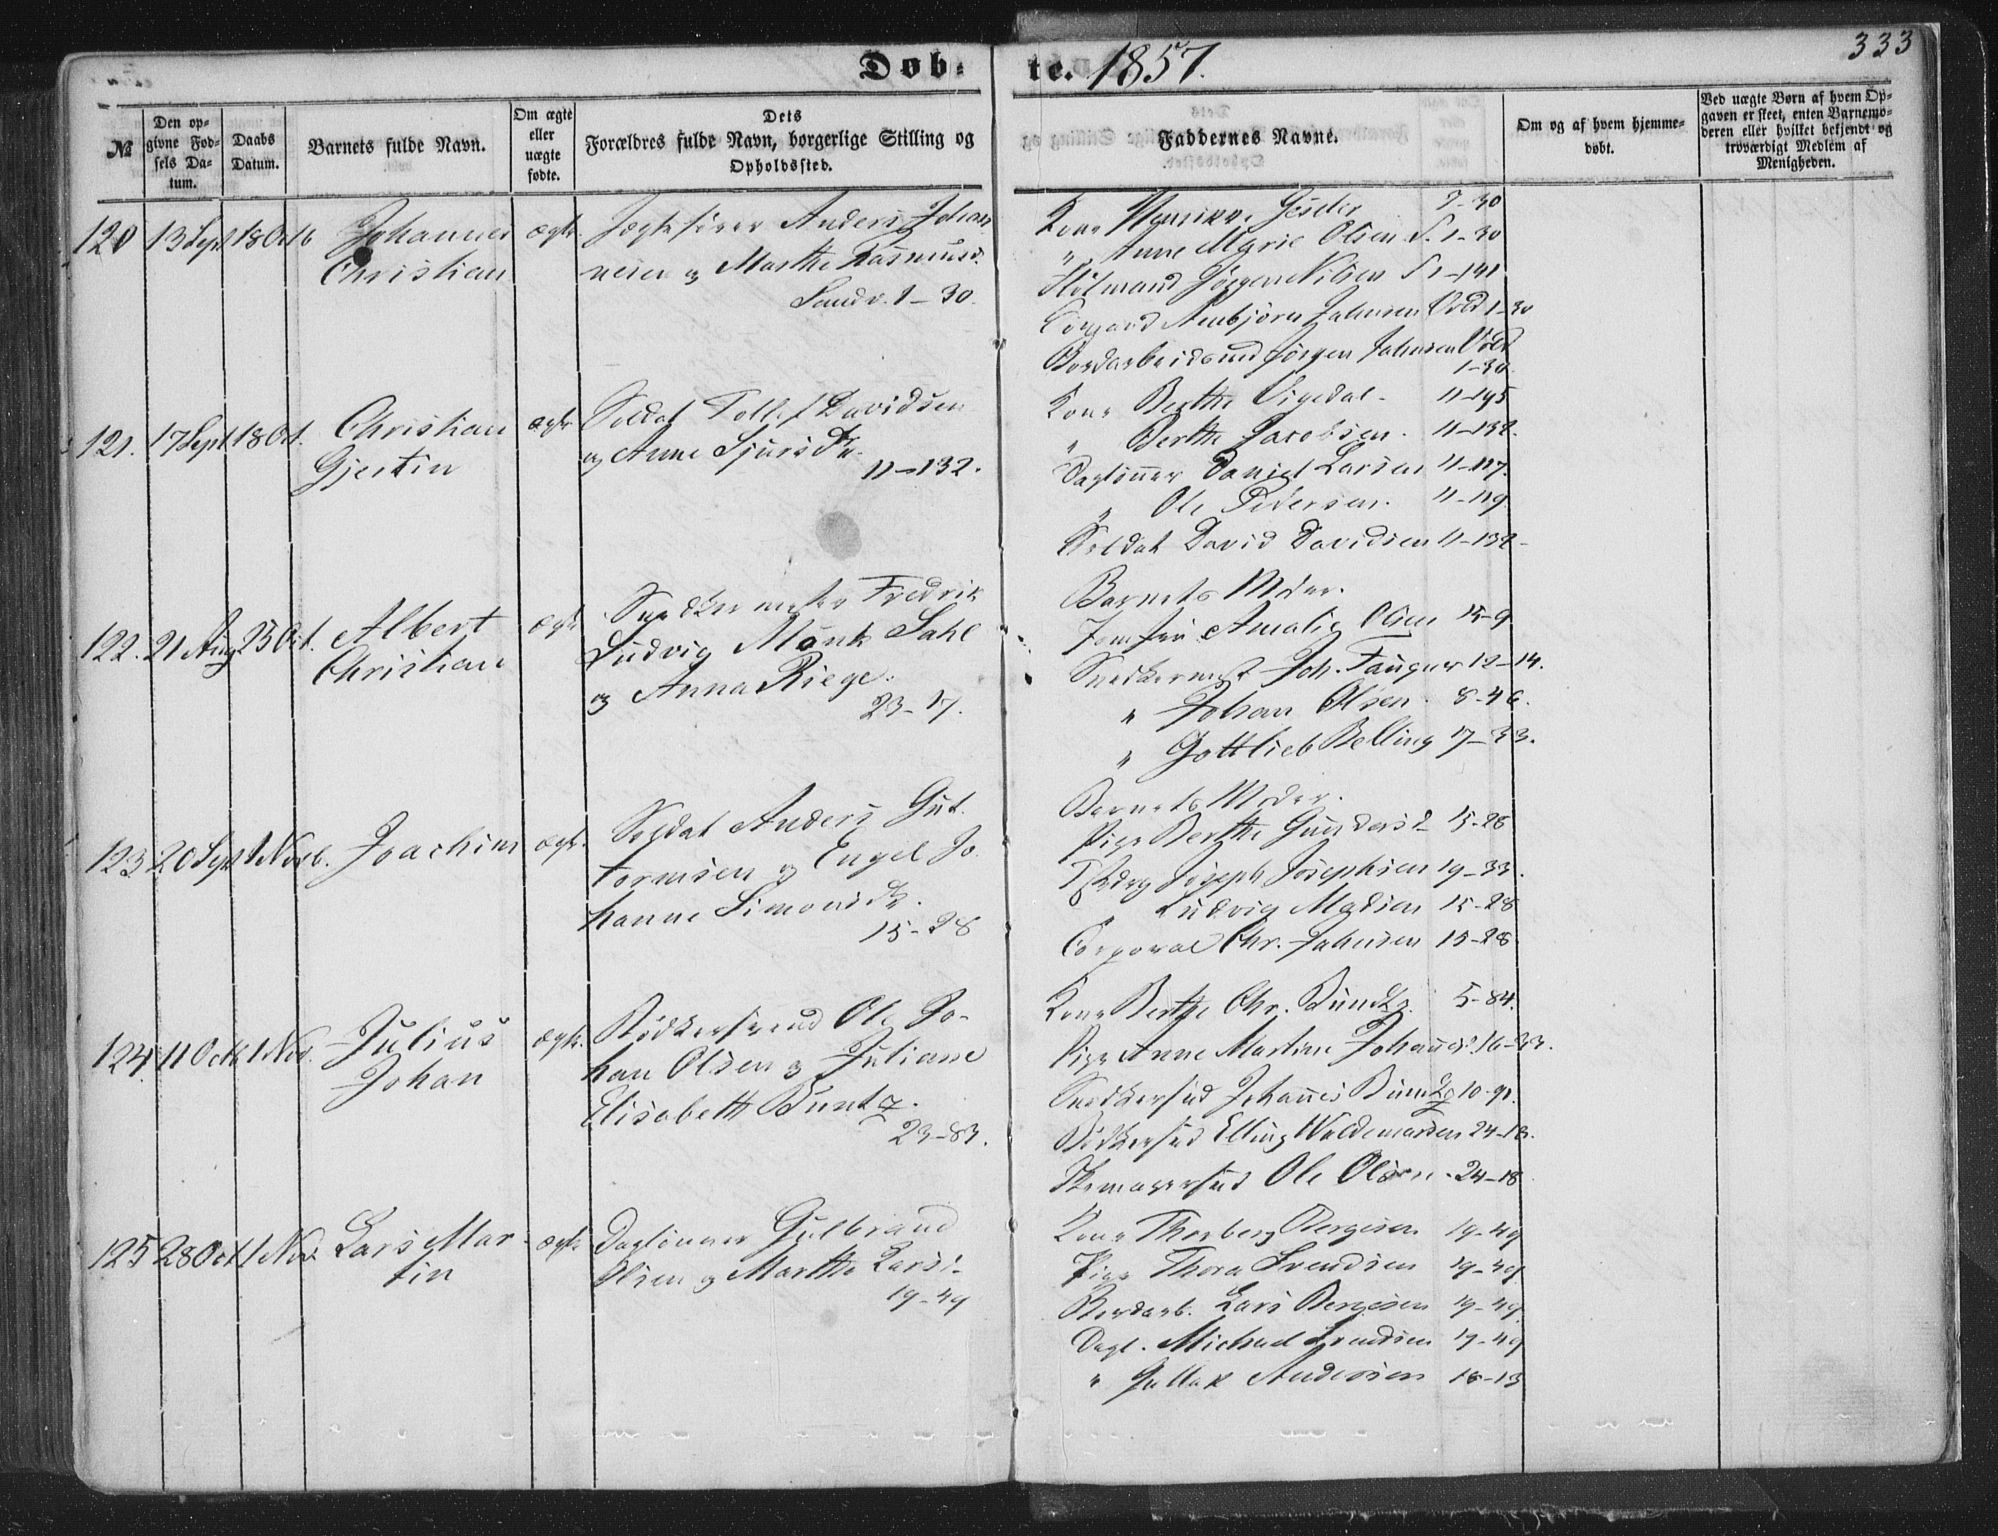 333
Døb- te. 1857.
№
Den opgivne Fødsels Datum.
Daabs Datum.
Barnets fulde Navn.
Om ægte eller uægte fødte.
Dets Forældres fulde Navn, borgerlige Stilling og Opholdssted.
Faddernes Navne.
Om og af hvem hjemmedøbt.
Ved uægte Børn af hvem Opgaven er skeet, enten Barnemoderen eller hvilket bekjendt og troværdigt Medlem af Menigheden.
120 13 Sept 18 Octb Johannes ægte
Christian
Anders Johan
nesen og Marthe Rasmusd.
Sandv. 1-30.
Kone
" Anne Marie Olsen S. 1-30
Jørgen Nilsen S 1-141
Annbjørn Johnsen 1-30
Jørgen Johnsen
1-30.
121. 17 Sept 18 Oct. Christian ægte Soldat Tollef Davidsen
Gjertin og Anne Sjursdr.
11-132.
Kone Berthe Vigedal 11-195
" Berthe Jacobsen. 11-132.
Dagløner Daniel Larsen 11-117.
" Ole Pedersen. 11-119
Soldat David Davidsen 11-132
122. 21 Aug 25 Oct. Albert ægte Snedkermester Fredrik
Christian Ludvig Mønk Sahl
og Anna Riege.
23-17.
Barnets Moder.
Jomfru Amalie Olsen 15-9
Snedkermst Joh. Fauger 12-14.
" Johan Olsen. 8-46.
" Gottlieb Belling 17-33.
123 20 Sept 1 Novb. Joachim ægte. Soldat Anders Gut-
tormsen og Engel Jo-
hanne Simonsdr.
15-28
Barnets Moder.
Pige Berthe Gundersd 15-28
Joseph Josephsen 19-33.
Ludvig Madsen 15-28
Corporal Chr. Johnsen 15-28.
124. 11 Oct 1 Nov. Julius ægte. Bødkersvend Ole Jo-
Johan han Olsen og Juliane
Elisabeth Buntz.
23-83.
Kone Berthe Chr. Buntz. 5-84.
Pige Anne Martine Johannesd. 16-33.
Snedkersvd Johannes Buntz 10-91.
Bødkersvd Elling Woldemarsen 24-18.
Skomagersvd Ole Olsen. 24-18
125 28 Oct 1 Nov. Lars Mar- ægte Dagløner Gulbrand
tin Olsen og Marthe Larsd.
19-49
Kone Thorberg Bergesen 19-49
Pige Thora Svendsen 19-49
Bordarb. Lars Bergesen 19-49
Dagl. Michael Svendsen 19-49
" Gullak Andersen 18-13